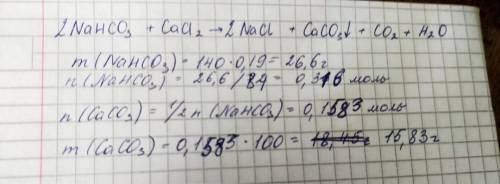 2NaHCO₃ + CaCl₂ → 2NaCl + CaCO₃↓ + CO₂ + H₂O
m(NaHCO₃) = 140·0,19 = 26,6г
n(NaHCO₃) = 26,6/84 = 0,316 моль
n(CaCO₃) = 1/2 n(NaHCO₃) = 0,1583 моль
m(CaCO₃) = 0,1583·100 = 15,83г